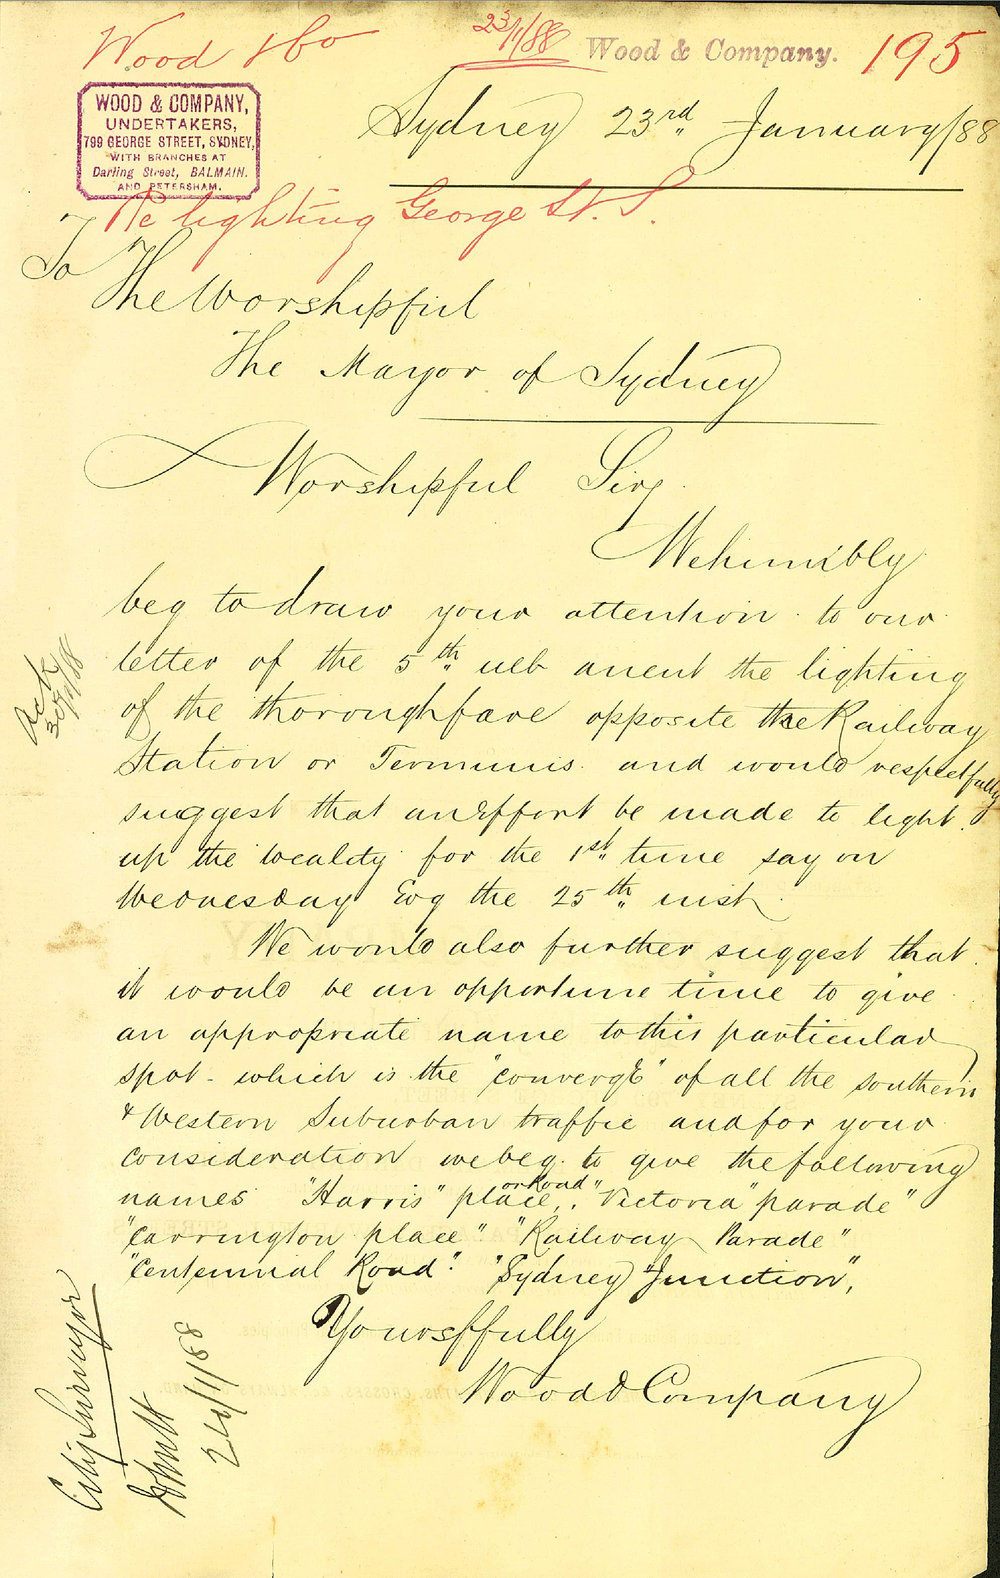 Wood & Co
23/1/88
Wood & Company.
195
WOOD & COMPANY,
UNDERTAKERS,
799 GEORGE STREET, SYDNEY,
WITH BRANCHES AT
Darling Street, BALMAIN.
AND PETERSHAM.
Sydney 23rd January/88
Re lighting George St. S.
To
The Worshipful
The Mayor of Sydney
Worshipful Sir,
We humbly
beg to draw your attention to our
letter of the 5th ult anent the lighting
of the thoroughfare opposite the Railway
Station or Terminus. and would respectfully
suggest that an Effort be made to light
up the locality for the 1st time say on
Wednesday Evg the 25th inst.
We would also further suggest that
it would be an opportune time to give
an appropriate name to this particular
spot - which is the "convergE" of all the southern
& Western Suburban traffic and for your
consideration we beg to give the following
names "Harris" place, or Road" "Victoria" parade"
"Carrington place". "Railway Parade"
"Centennial Road". "Sydney Junction",
Yours ffully
Wood & Company
Ack
30/1/88
City Surveyor
24/1/88